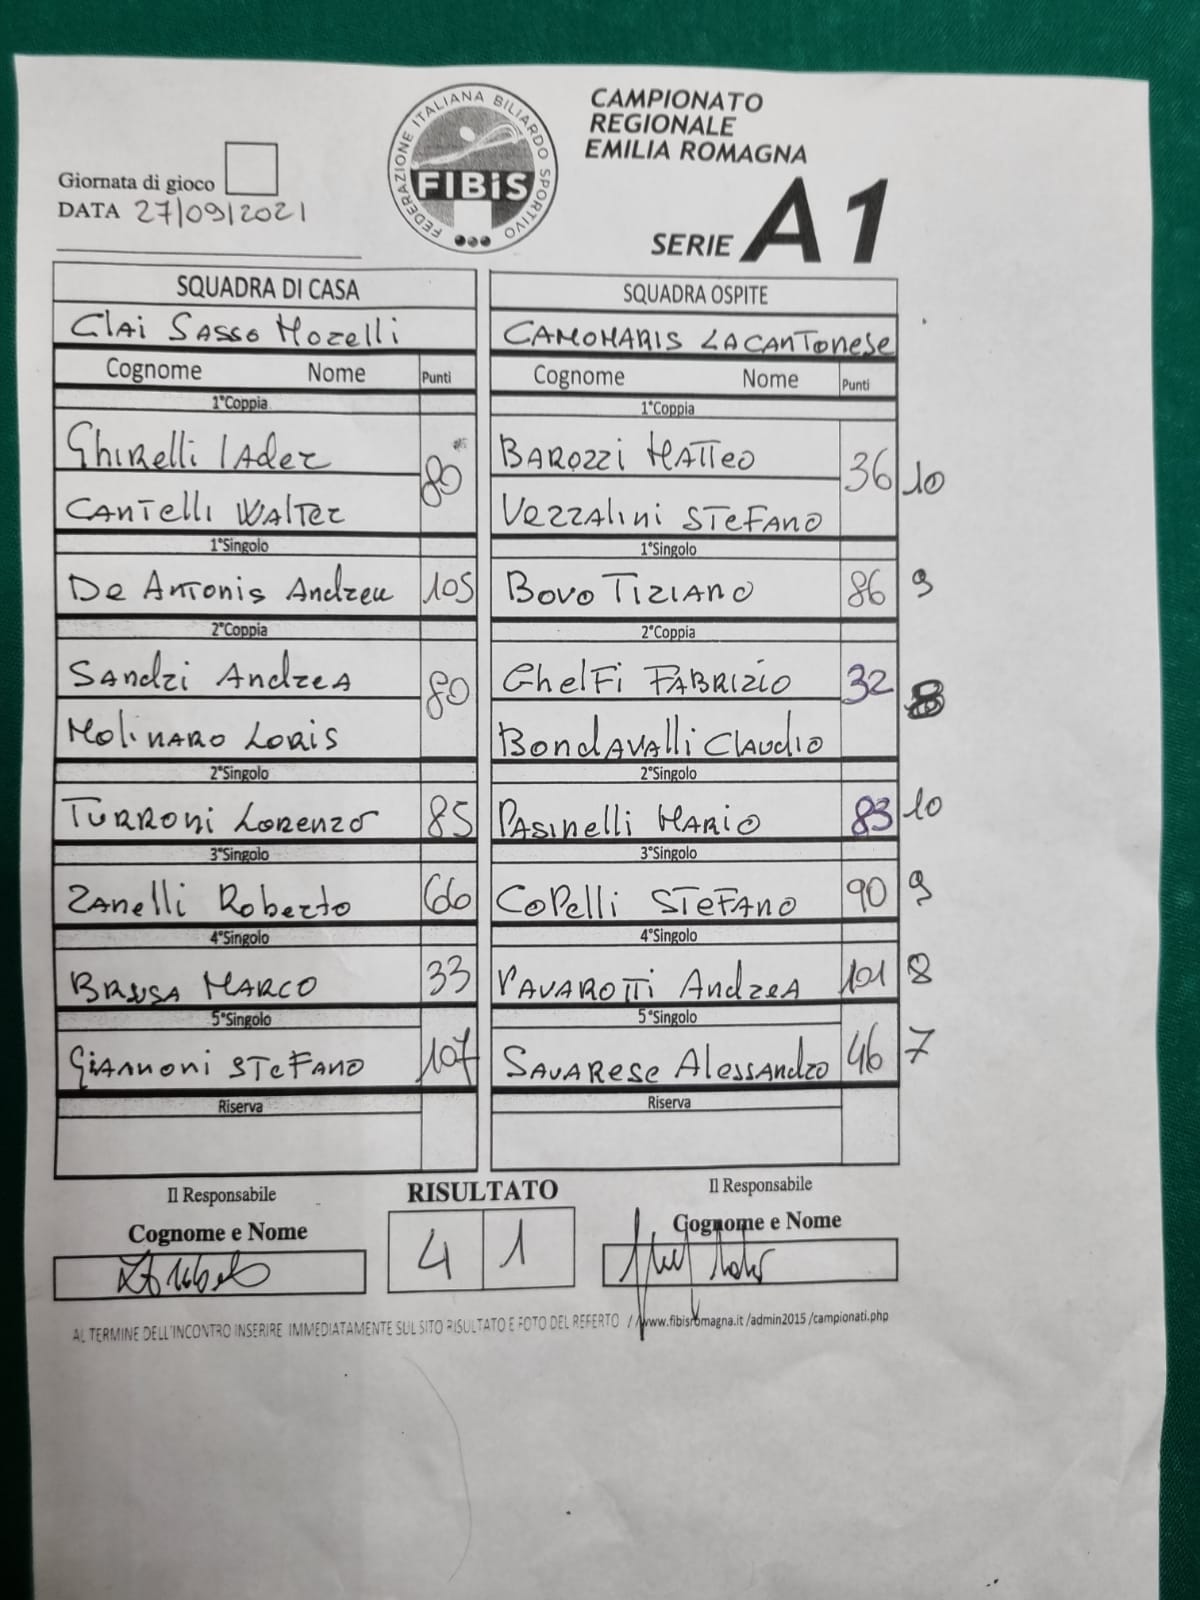 FEDERAZIONE ITALIANA BILIARDO SPORTIVO
FIBiS
CAMPIONATO
REGIONALE
EMILIA ROMAGNA
SERIE A1
Giornata di gioco
DATA 27/09/2021
SQUADRA DI CASA SQUADRA OSPITE
Clai Sasso Morelli CAMOMARIS LACANTONESE
Cognome Nome Punti Cognome Nome Punti
1°Coppia 1°Coppia
Ghirelli Iader 80 BAROZZI MATTEO 36 10
CANTELLI WALTER VEZZALINI STEFANO
1°Singolo 1°Singolo
De Antonis Andrea 105 BOVO TIZIANO 86 9
2°Coppia 2°Coppia
Sandri Andrea 80 Ghelfi FABRIZIO 32 8
Molinaro Loris Bondavalli Claudio
2°Singolo 2°Singolo
TURRONI LORENZO 85 PASINELLI MARIO 83 10
3°Singolo 3°Singolo
Zanelli Roberto 66 COPELLI STEFANO 90 9
4°Singolo 4°Singolo
BRUSA MARCO 33 PAVAROTTI ANDREA 101 8
5°Singolo 5°Singolo
Giannoni STEFANO 107 SAVARESE ALESSANDRO 46 7
Riserva Riserva
Il Responsabile RISULTATO Il Responsabile
Cognome e Nome 4 1 Cognome e Nome
AL TERMINE DELL'INCONTRO INSERIRE IMMEDIATAMENTE SUL SITO RISULTATO E FOTO DEL REFERTO / www.fibisromagna.it /admin2015 /campionati.php